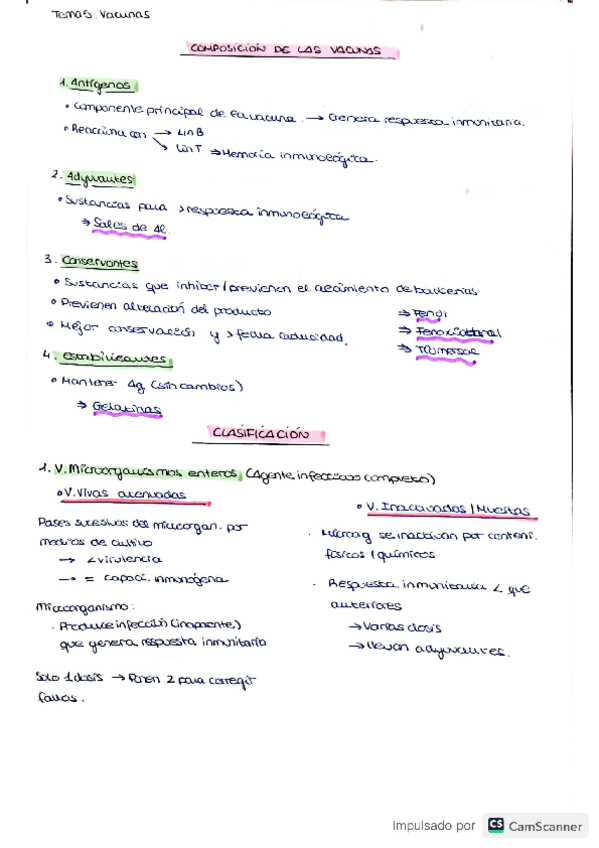 Tema 5. Vacunas
COMPOSICIÓN DE LAS VACUNAS
1. Antígenos
• Componente principal de la vacuna. → Genera respuesta inmunitaria.
• Reacciona con → Lin B
↘ Lin T ⇒ Memoria inmunológica.
2. Adyuvantes
• Sustancias para > respuesta inmunológica
⇒ Sales de Al.
3. Conservantes
• Sustancias que inhiben/previenen el crecimiento de bacterias
• Previenen alteración del producto
⇒ Fenol
• Mejor conservación y > fecha caducidad.
⇒ Fenoxietanol
⇒ Tiomersal
4. Estabilizantes
• Mantener Ag (sin cambios)
⇒ Gelatinas
CLASIFICACIÓN
1. V. Microorganismos enteros (Agente infeccioso completo)
• V. Vivas atenuadas
Pases sucesivos del microorgan. por
medios de cultivo
→ < virulencia
→ = capaci. inmunógena
Microorganismo:
· Produce infección (inaparente)
que genera respuesta inmunitaria
Solo 1 dosis → Ponen 2 para corregir
fallos.
• V. Inactivadas / Muertas
· Microorg se inactivan por
físicos / químicos
· Respuesta inmunitaria < que
anteriores
→ Varias dosis
→ Llevan adyuvantes.
Impulsado por CS CamScanner